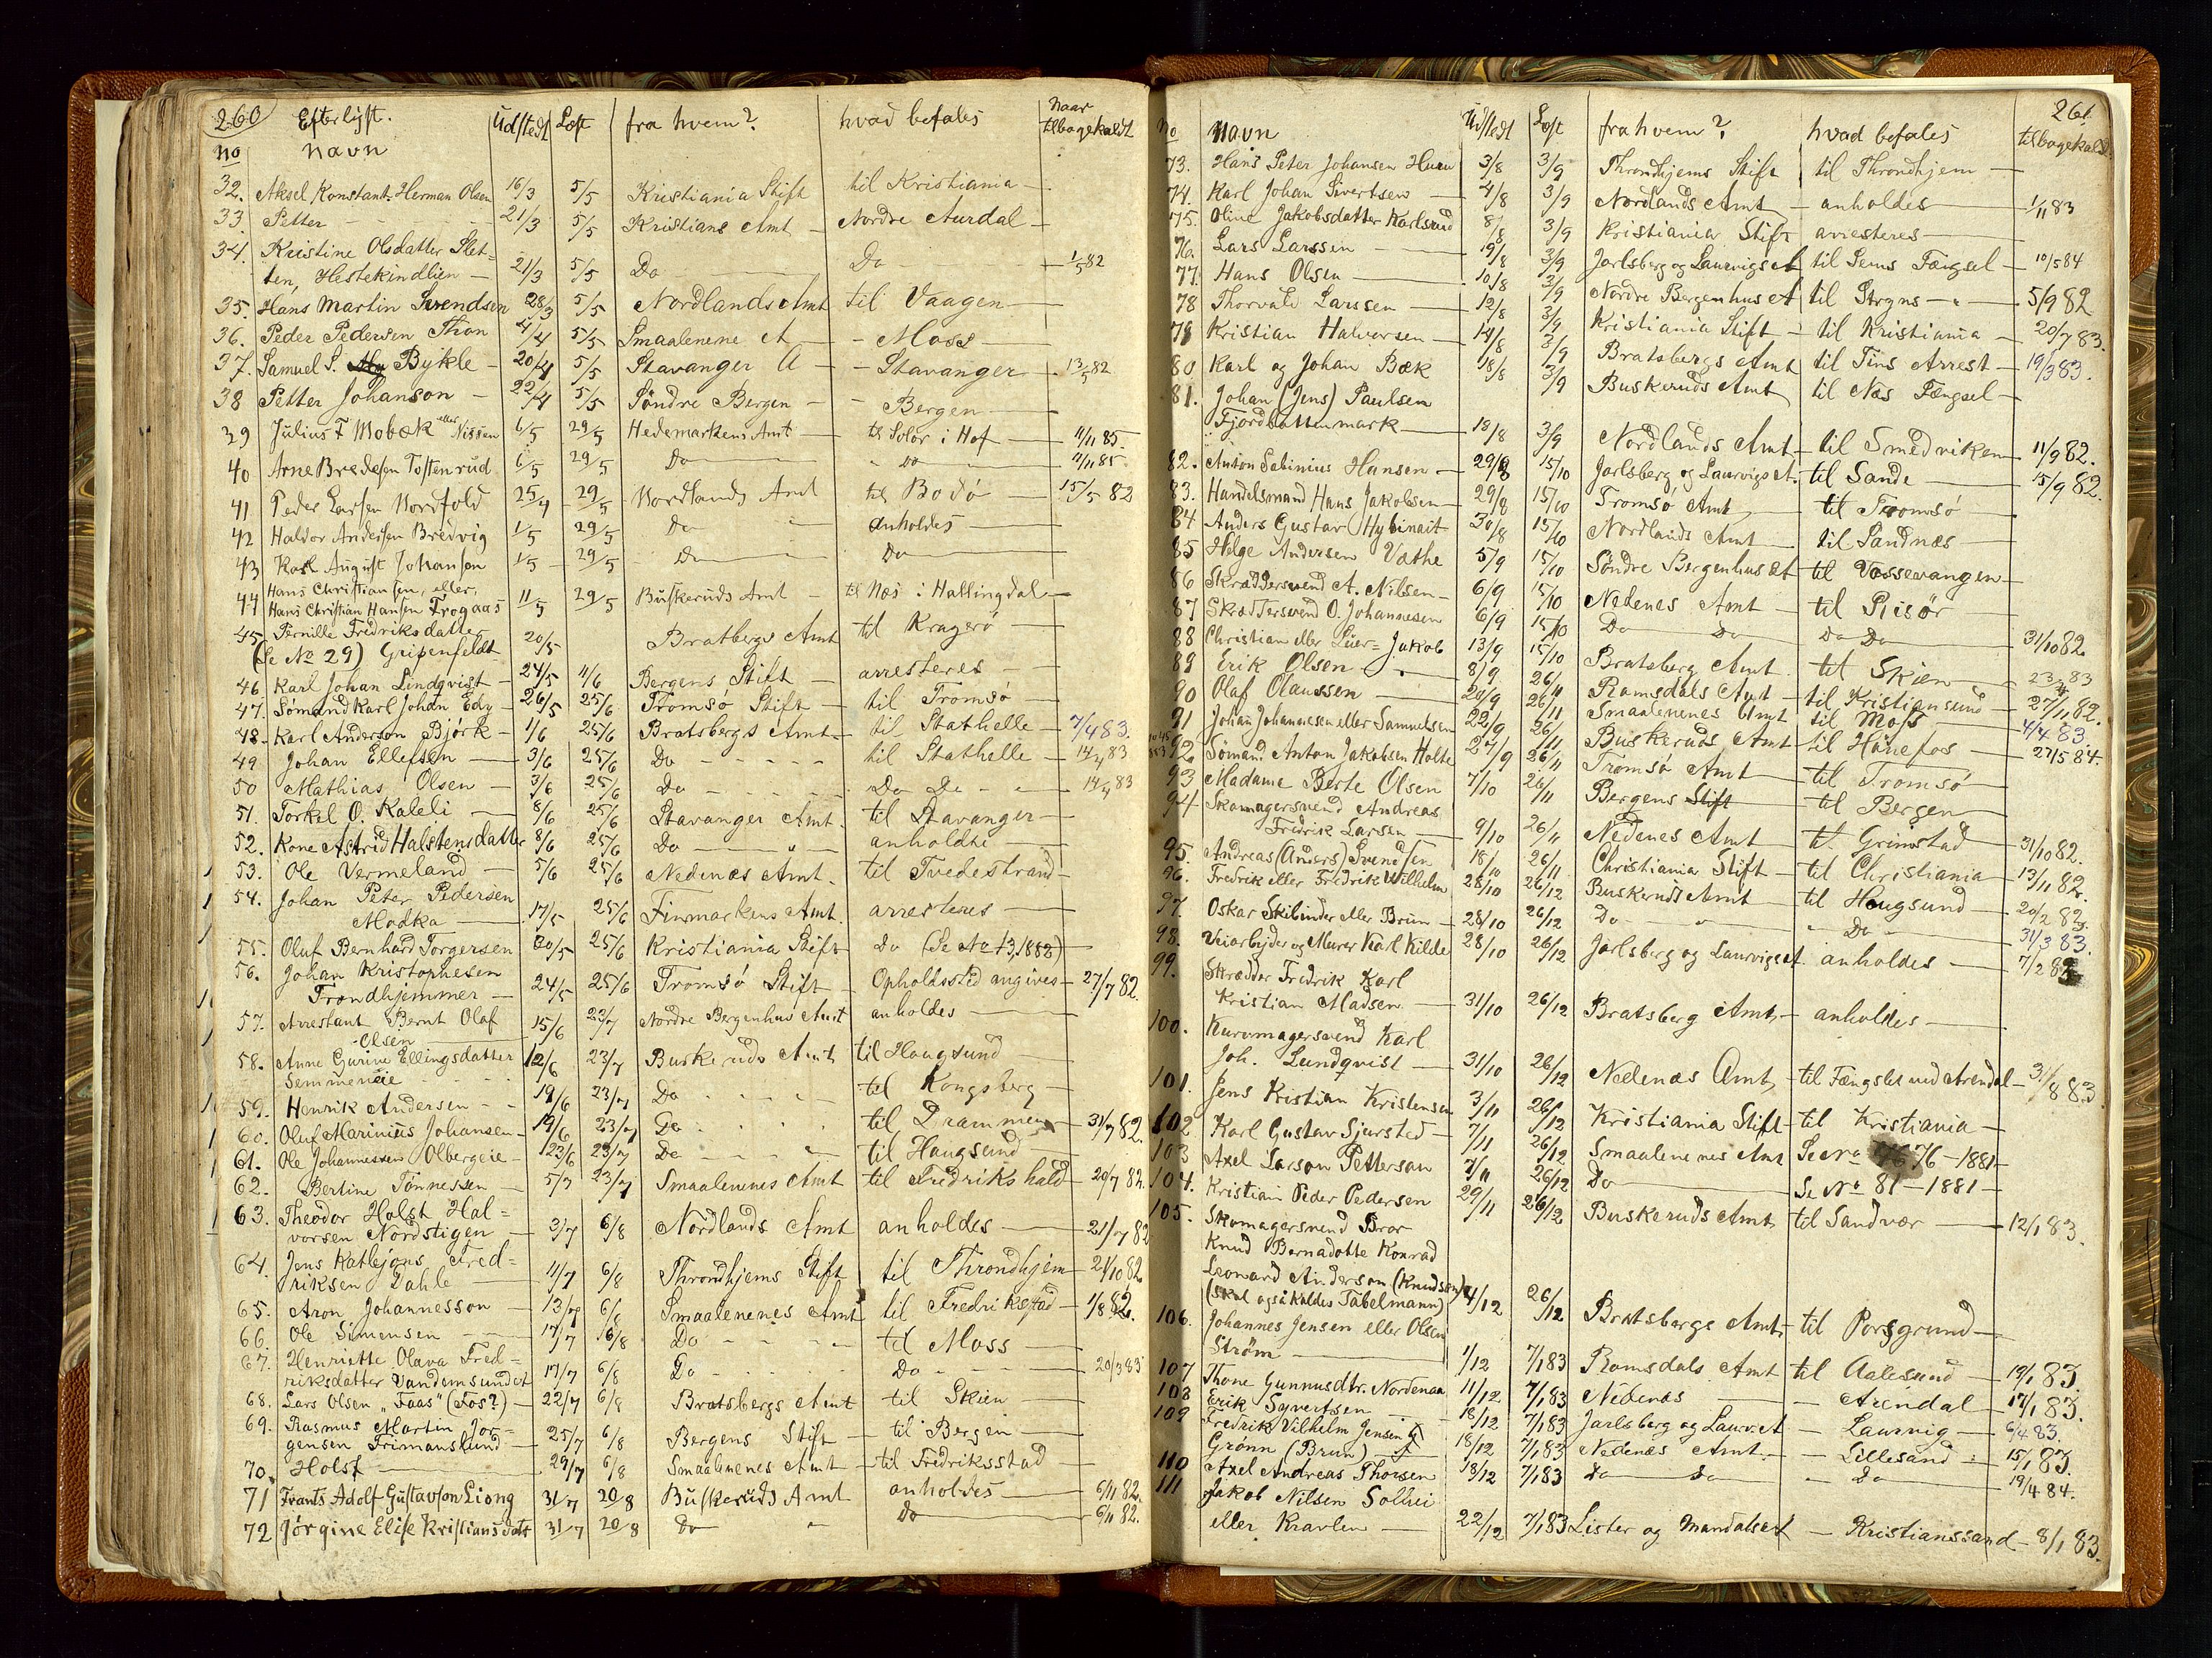 260 Efterlyst. Udstedt Læst fra hvem? hvad befales Naar tilbagekaldt
No Navn
32. Aksel Konstant. Herman Olsen 16/3 5/5 Kristiania Stift til Kristiania —
33. Petter - - - 21/3 5/5 Kristians Amt - Nordre Aurdal —
34. Kristine Olsdatter Slet=
ten, Hestekindlien — 21/3 5/5 Do Do 1/5 82
35. Hans Martin Svendsen 28/3 5/5 Nordlands Amt til Vaagen —
36. Peder Pedersen Thon 4/4 5/5 Smaalenene A - Moss —
37. Samuel S. Bykle - 20/4 5/5 Stavanger A - Stavanger 13/5 82
38 Petter Johanson - 22/4 5/5 Söndre Bergen - Bergen —
39 Julius F Mobæk eller Nissen 6/5 29/5 Hedemarkens Amt — til Solör i Hof — 11/11 85.
40 Arne Bredesen Tostenrud 6/5 29/5 Do — Do — 11/11 85.
41 Peder Larsen Nordfold 25/4 29/5 Nordlands Amt til Bodö — 15/5 82
42 Haldor Andersen Bredvig 1/5 29/5 Do anholdes —
43 Karl August Johansen 1/5 29/5 Do Do
44 Hans Christiansen, eller,
Hans Christian Hansen Frogaas 11/5 29/5 Buskeruds Amt - til Næs i Hallingdal —
45. Pernille Fredriksdatter
(Se No 29) Gripenfeldt 20/5 Bratbergs Amt til Kragerö —
46. Karl Johan Lindqvist - 24/5 11/6 Bergens Stift - arresteres —
47. Sömand Karl Johan Edy - 26/5 25/6 Tromsö Stift - til Tromsö —
48. Karl Anderson Björk - 1/6 25/6 Bratsbergs Amt - til Stathelle — 7/4 83.
49 Johan Ellefsen — 3/6 25/6 Do - - - - til Stathelle — 14/4 83
50 Mathias Olsen — 3/6 25/6 Do - - - - Do Do - - 14/4 83
51. Torkel O. Kaleli — 8/6 25/6 Stavanger Amt. til Stavanger —
52. Kone Astrid Halstensdatter 8/6 25/6 Do — " anholdes —
53. Ole Vermeland — 5/6 25/6 Nedenæs Amt. til Tvedestrand —
54. Johan Peter Pedersen
Modka — 17/5 25/6 Finmarkens Amt. arresteres —
55. Oluf Bernhard Torgersen 20/5 25/6 Kristiania Stift Do (Se No 13, 1882)
56. Johan Kristophesen
Trondhjemmer — 24/5 25/6 Tromsö Stift - Opholdssted angives — 27/7 82.
57. Arrestant Bernt Olaf
Olsen — 15/6 23/7 Nordre Bergenhus Amt anholdes —
58. Anne Gurine Ellingsdatter
Semmeneie - - 12/6 23/7 Buskeruds Amt til Haugsund —
59. Henrik Andersen - - 19/6 23/7 Do - - - til Kongsberg —
60. Oluf Marinius Johansen - 19/6 23/7 Do - - - til Drammen — 31/7 82.
61. Ole Johannessen Olbergeie - 23/6 23/7 Do — til Haugsund —
62. Bertine Tönnessen — 5/7 23/7 Smaalenenes Amt til Fredrikshald — 20/7 82.
63. Theodor Holst Hal=
vorsen Nordstigen — 3/7 6/8 Nordlands Amt anholdes — 21/7 82
64. Jens Katlejons Fred=
riksen Dahle — 11/7 6/8 Throndhjems Stift til Throndhjem — 21/10 82
65. Aron Johannesson — 13/7 6/8 Smaalenenes Amt til Fredrikstad — 1/8 82.
66. Ole Simensen — 17/7 16/8 Do - - - til Moss —
67. Henriette Olava Fred=
riksdatter Vandemsundet 17/7 6/8 Do - - - Do - — 20/3 83
68. Lars Olsen „Faas" (Fos?) — 22/7 6/8 Bratsbergs Amt til Skien —
69. Rasmus Martin Jor=
gensen Frimanslund — 25/7 6/8 Bergens Stift - til Bergen —
70. Holst — 29/7 6/8 Smaalenenes Amt - til Fredriksstad —
71 Frants Adolf Gustavson Liong 31/7 20/8 Buskeruds Amt anholdes — 6/11 82.
72 Jörgine Elise Kristiansdatt 31/7 20/8 Do " Do — 6/11 82.
261.
No Navn Udstedt Læst fra hvem? hvad befales tilbagekaldt
73. Hans Peter Johansen Hurn 3/8 3/9 Throndhjems Stift til Throndhjem —
74. Karl Johan Sivertsen — 4/8 3/9 Nordlands Amt - anholdes — 1/11 83
75. Oline Jakobsdatter Karlsrud 8/8 3/9 Kristiania Stift arresteres —
76. Lars Larssen — 19/8 3/9 Jarlsberg og Laurvigs A til Sems Fængsel — 10/5 84
77. Hans Olsen — 10/8 3/9 Nordre Bergenhus A til Stryns — " — 5/9 82
78 Thorvald Larssen — 12/8 3/9 Kristiania Stift - til Kristiania — 20/7 83.
79 Kristian Halvorsen — 14/8 3/9 Bratsbergs Amt til Tins Arrest — 19/3 83.
80 Karl og Johan Bæk 18/8 3/9 Buskeruds Amt til Næs Fængsel —
81. Johan (Jens) Paulsen
Fjordbottenmark — 18/8 3/9 Nordlands Amt - til Smedviken — 11/9 82.
82. Anton Sabinius Hansen — 29/8 15/10 Jarlsberg og Laurvigs A. til Sande — 15/9 82.
83. Handelsmand Hans Jakobsen — 29/8 15/10 Tromsö Amt til Tromsö
84 Anders Gustav Hybinait 30/8 15/10 Nordlands Amt til Sandnæs —
85 Helge Andersen Væthe 5/9 15/10 Söndre Bergenhus At til Vossevangen —
86 Skræddersvend A. Nilsen — 6/9 15/10 Nedenes Amt — til Risör
87 Skræddersvend O. Johannesen 6/9 15/10 Do Do Do Do — 31/10 82.
88 Christian eller Luer= Jakob 13/9 15/10 Bratsberg Amt til Skien — 23/4 83
89 Erik Olsen — 8/9 26/11 Romsdals Amt — til Kristiansund — 27/11 82.
90 Olaf Olaussen — 20/9 26/11 Smaalenenes Amt til Moss — 4/4 83.
91 Johan Johannesen eller Samuelsen 22/9 26/11 Buskeruds Amt - til Hönefos — 27/5 84.
92 Sömand Anton Jakobsen Holte 27/9 26/11 Tromsö Amt — til Tromsö
93 Madame Berte Olsen 7/10 26/11 Bergens Stift — til Bergen —
94 Skomagersvend Andreas
Fredrik Larsen — 9/10 26/11 Nedenes Amt — til Grimstad — 31/10 82.
95. Andreas (Anders) Svendsen 18/10 26/11 Christiania Stift — til Christiania — 13/11 82.
96. Fredrik eller Fredrik Wilhelm 28/10 26/12 Buskeruds Amt — til Hougsund — 20/2 83.
97. Oskar Skibinder eller Brun — 28/10 26/12 Do - " - Do — 31/3 83.
98. Veiarbejder og Murer Karl Kilde 28/10 26/12 Jarlsberg og Laurvigs A anholdes — 7/2 83
99. Skrædder Fredrik Karl
Kristian Madsen — 31/10 26/12 Bratsberg Amt — anholdes —
100. Kurvmagersvend Karl
Joh. Lundqvist — 31/10 26/12 Nedenæs Amt — til Fængslet ved Arendal — 31/8 83.
101. Jens Kristian Kristensen 3/11 26/12 Kristiania Stift - til Kristiania —
102 Karl Gustav Sjursted — 7/11 26/12 Smaalenenes Amt Se No 76 - 1881 —
103 Axel Larson Petterson 7/11 26/12 Do Se No 81 - 1881 —
104. Kristian Peder Pedersen 29/11 26/12 Buskeruds Amt til Sandvær — 12/1 83.
105. Skomagersvend Bror
Knud Bernadotte Konrad
Leonard Anderson (Knudsen)
(skal også kaldes Tabelmann) 4/12 26/12 Bratsbergs Amt - til Porsgrund —
106. Johannes Jensen eller Olsen
Ström — 1/12 7/1 83 Romsdals Amt til Aalesund — 19/1 83.
107 Thone Gunnusdtr. Nordenaa 11/12 7/1 83 Nedenæs — Arendal — 17/1 83.
108 Erik Syvertsen 18/12 7/1 83 Jarlsberg og Laurv. A — Laurvig — 6/4 83.
109 Fredrik Vilhelm Jensen
Grönn (Brun) — 18/12 7/1 83 Nedenæs Amt. - Lillesand - 15/1 83.
110 Axel Andreas Thorsen 18/12 7/1 83 Do Do Do 19/4 84.
111 Jakob Nilsen Solhei
eller Kravlen — 22/12 7/1 83 Lister og Mandals A — Kristianssand - 8/1 83.